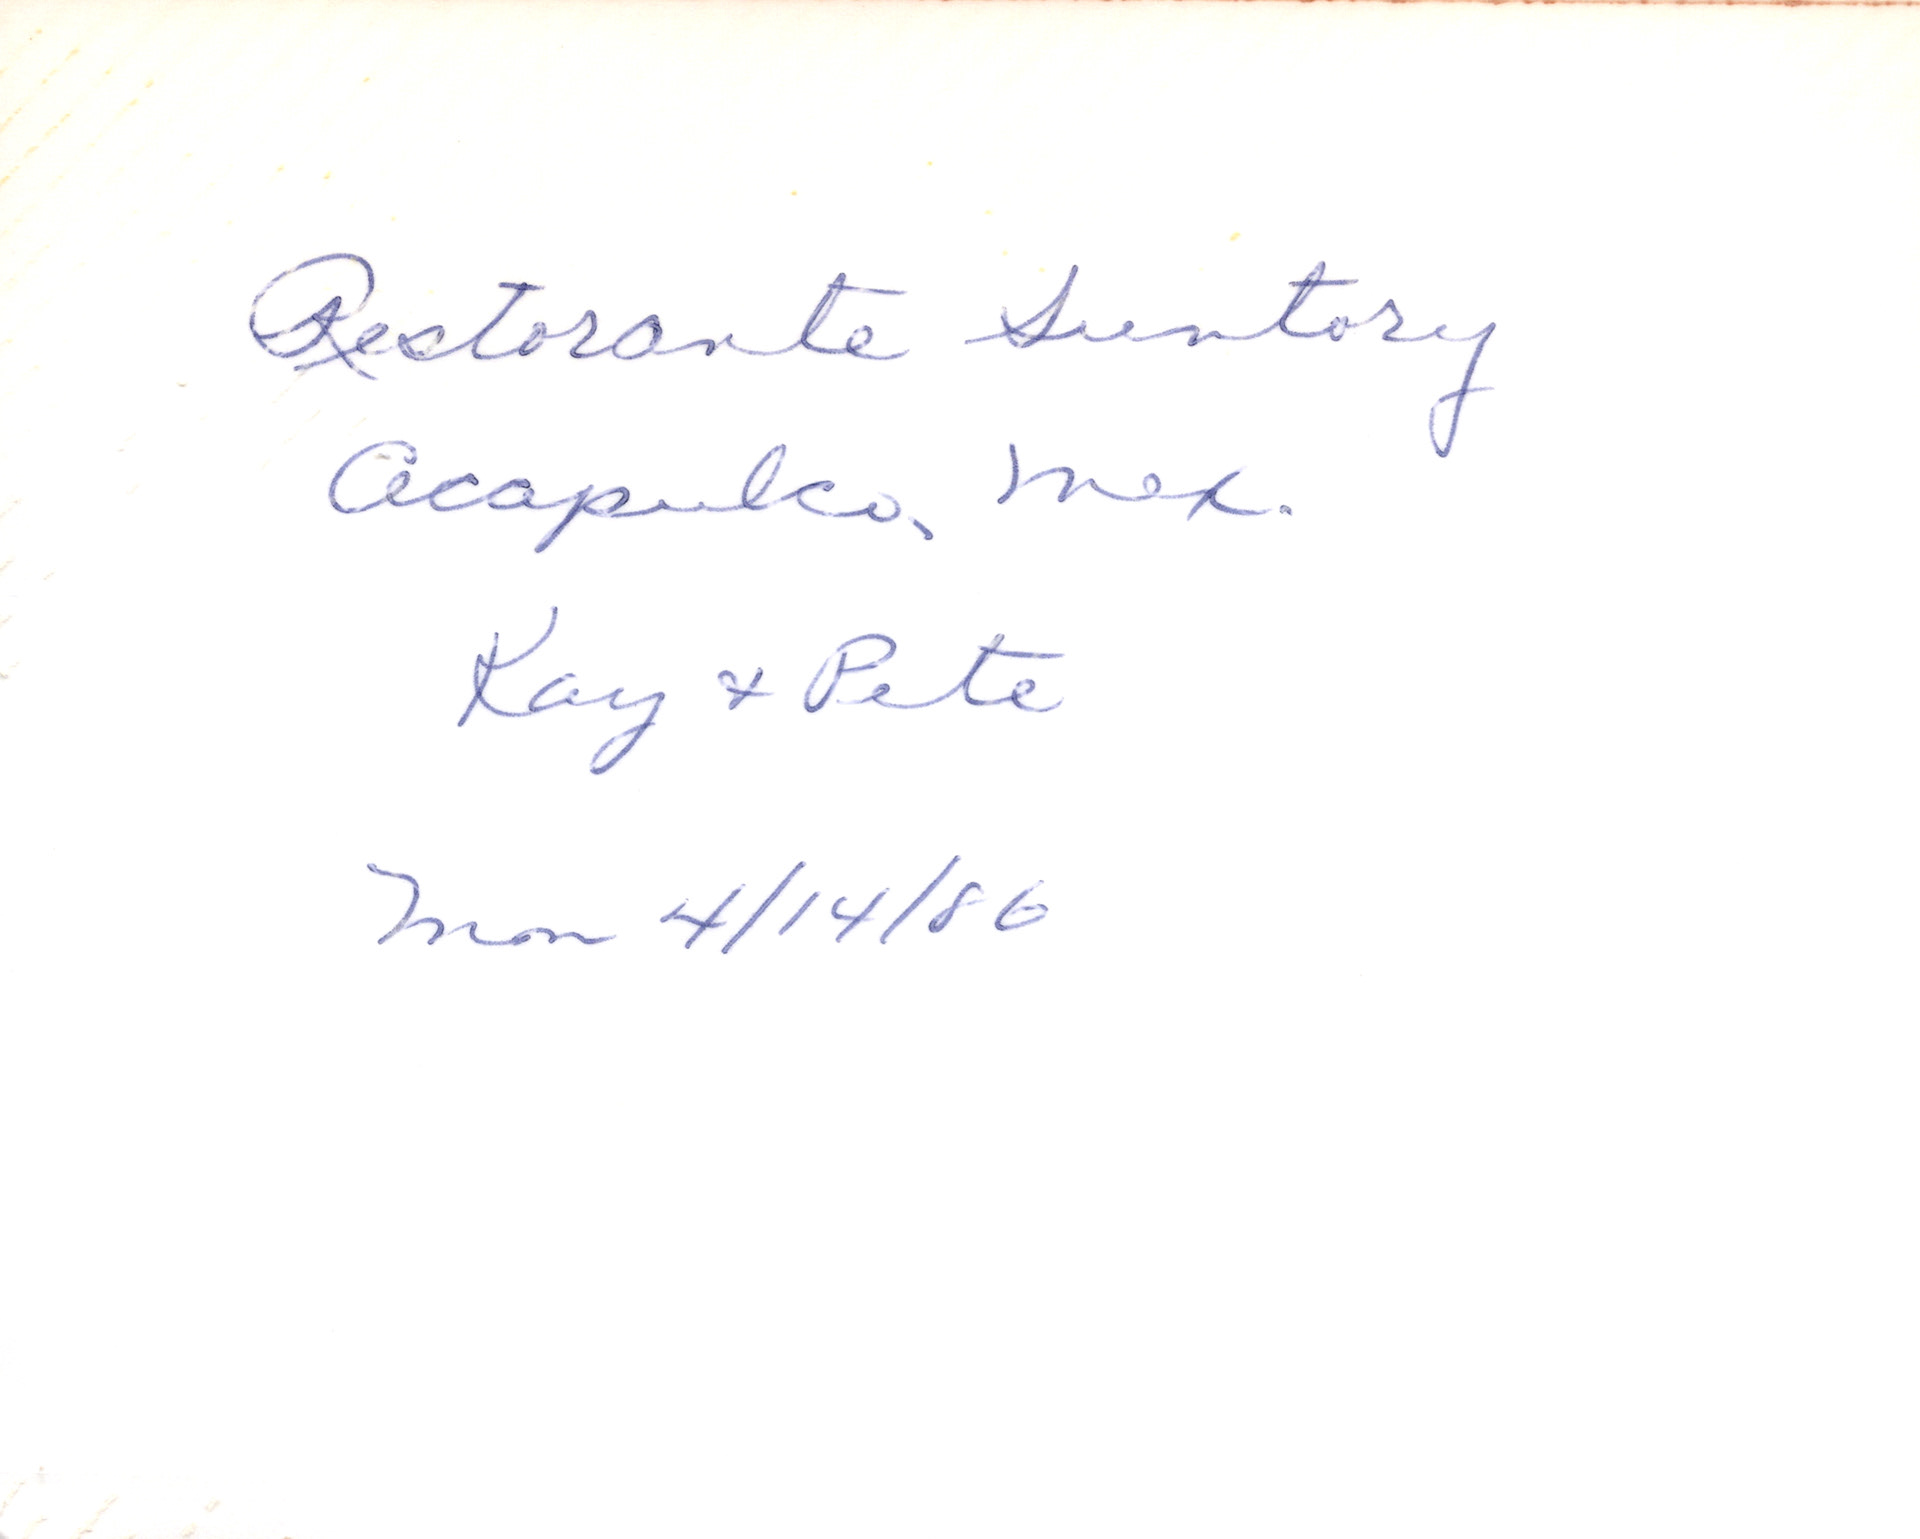 Restorante Suntory
Acapulco, Mex.
Kay & Pete
Mon 4/14/86